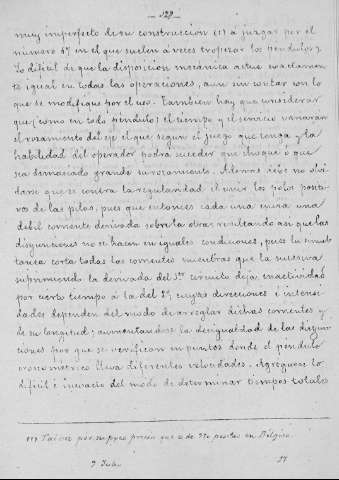 — 129 —
muy imperfecto de su construccion (1) a juzgar por el
número 67 in el que suelen á veces tropezar los péndulos y
lo dificil de que la disposicion mecánica actue exactamen-
te igual en todas las operaciones, aun sin contar con lo
que se modifique por el uso. Tambien hay que considerar
que, como en todo péndulo, el tiempo y el servicio variarán
el rozamiento del eje el que segun el juego que tenga y la
habilidad del operador podrá suceder que choque ó que
sea demasiado grande su rozamiento. Ademas debe no olvi-
darse que es contra la regularidad el unir los polos positi-
vos de las pilas, pues que entonces cada una envia una
debil corriente derivada sobre la otra, resultando asi que las
disyunciones no se hacen en iguales condiciones, pues la
corta todas las corrientes mientras que la sucesiva
suprimiendo la derivada del 1er circuito deja en actividad
por cierto tiempo á la del 2º, cuyas direcciones é intensi-
dades dependen del modo de arreglar dichas corrientes y
de su longitud; aumentandose la desigualdad de las disyun-
ciones por que se verifican en puntos donde el péndulo
cronométrico lleva diferentes velocidades. Agreguese lo
dificil é inexacto del modo de determinar tiempos totales
(1) por supuesto precio que es de 770 pesetas en Bélgica.
9 17